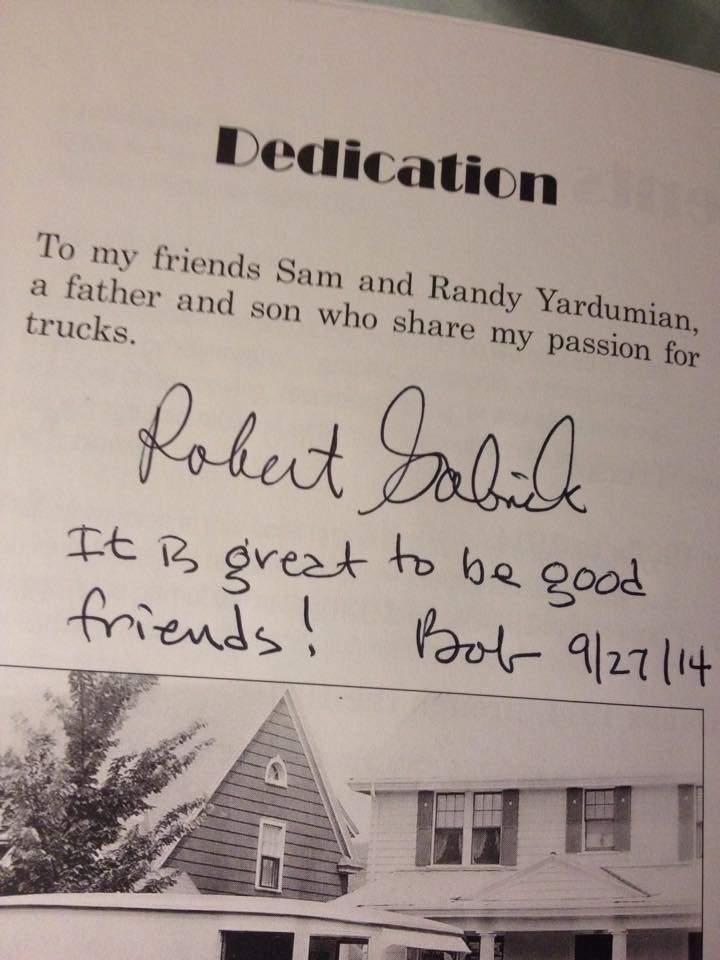 Dedication
To my friends Sam and Randy Yardumian,
a father and son who share my passion for
trucks.
Robert Gabrick
It is great to be good
friends! Bob 9/27/14